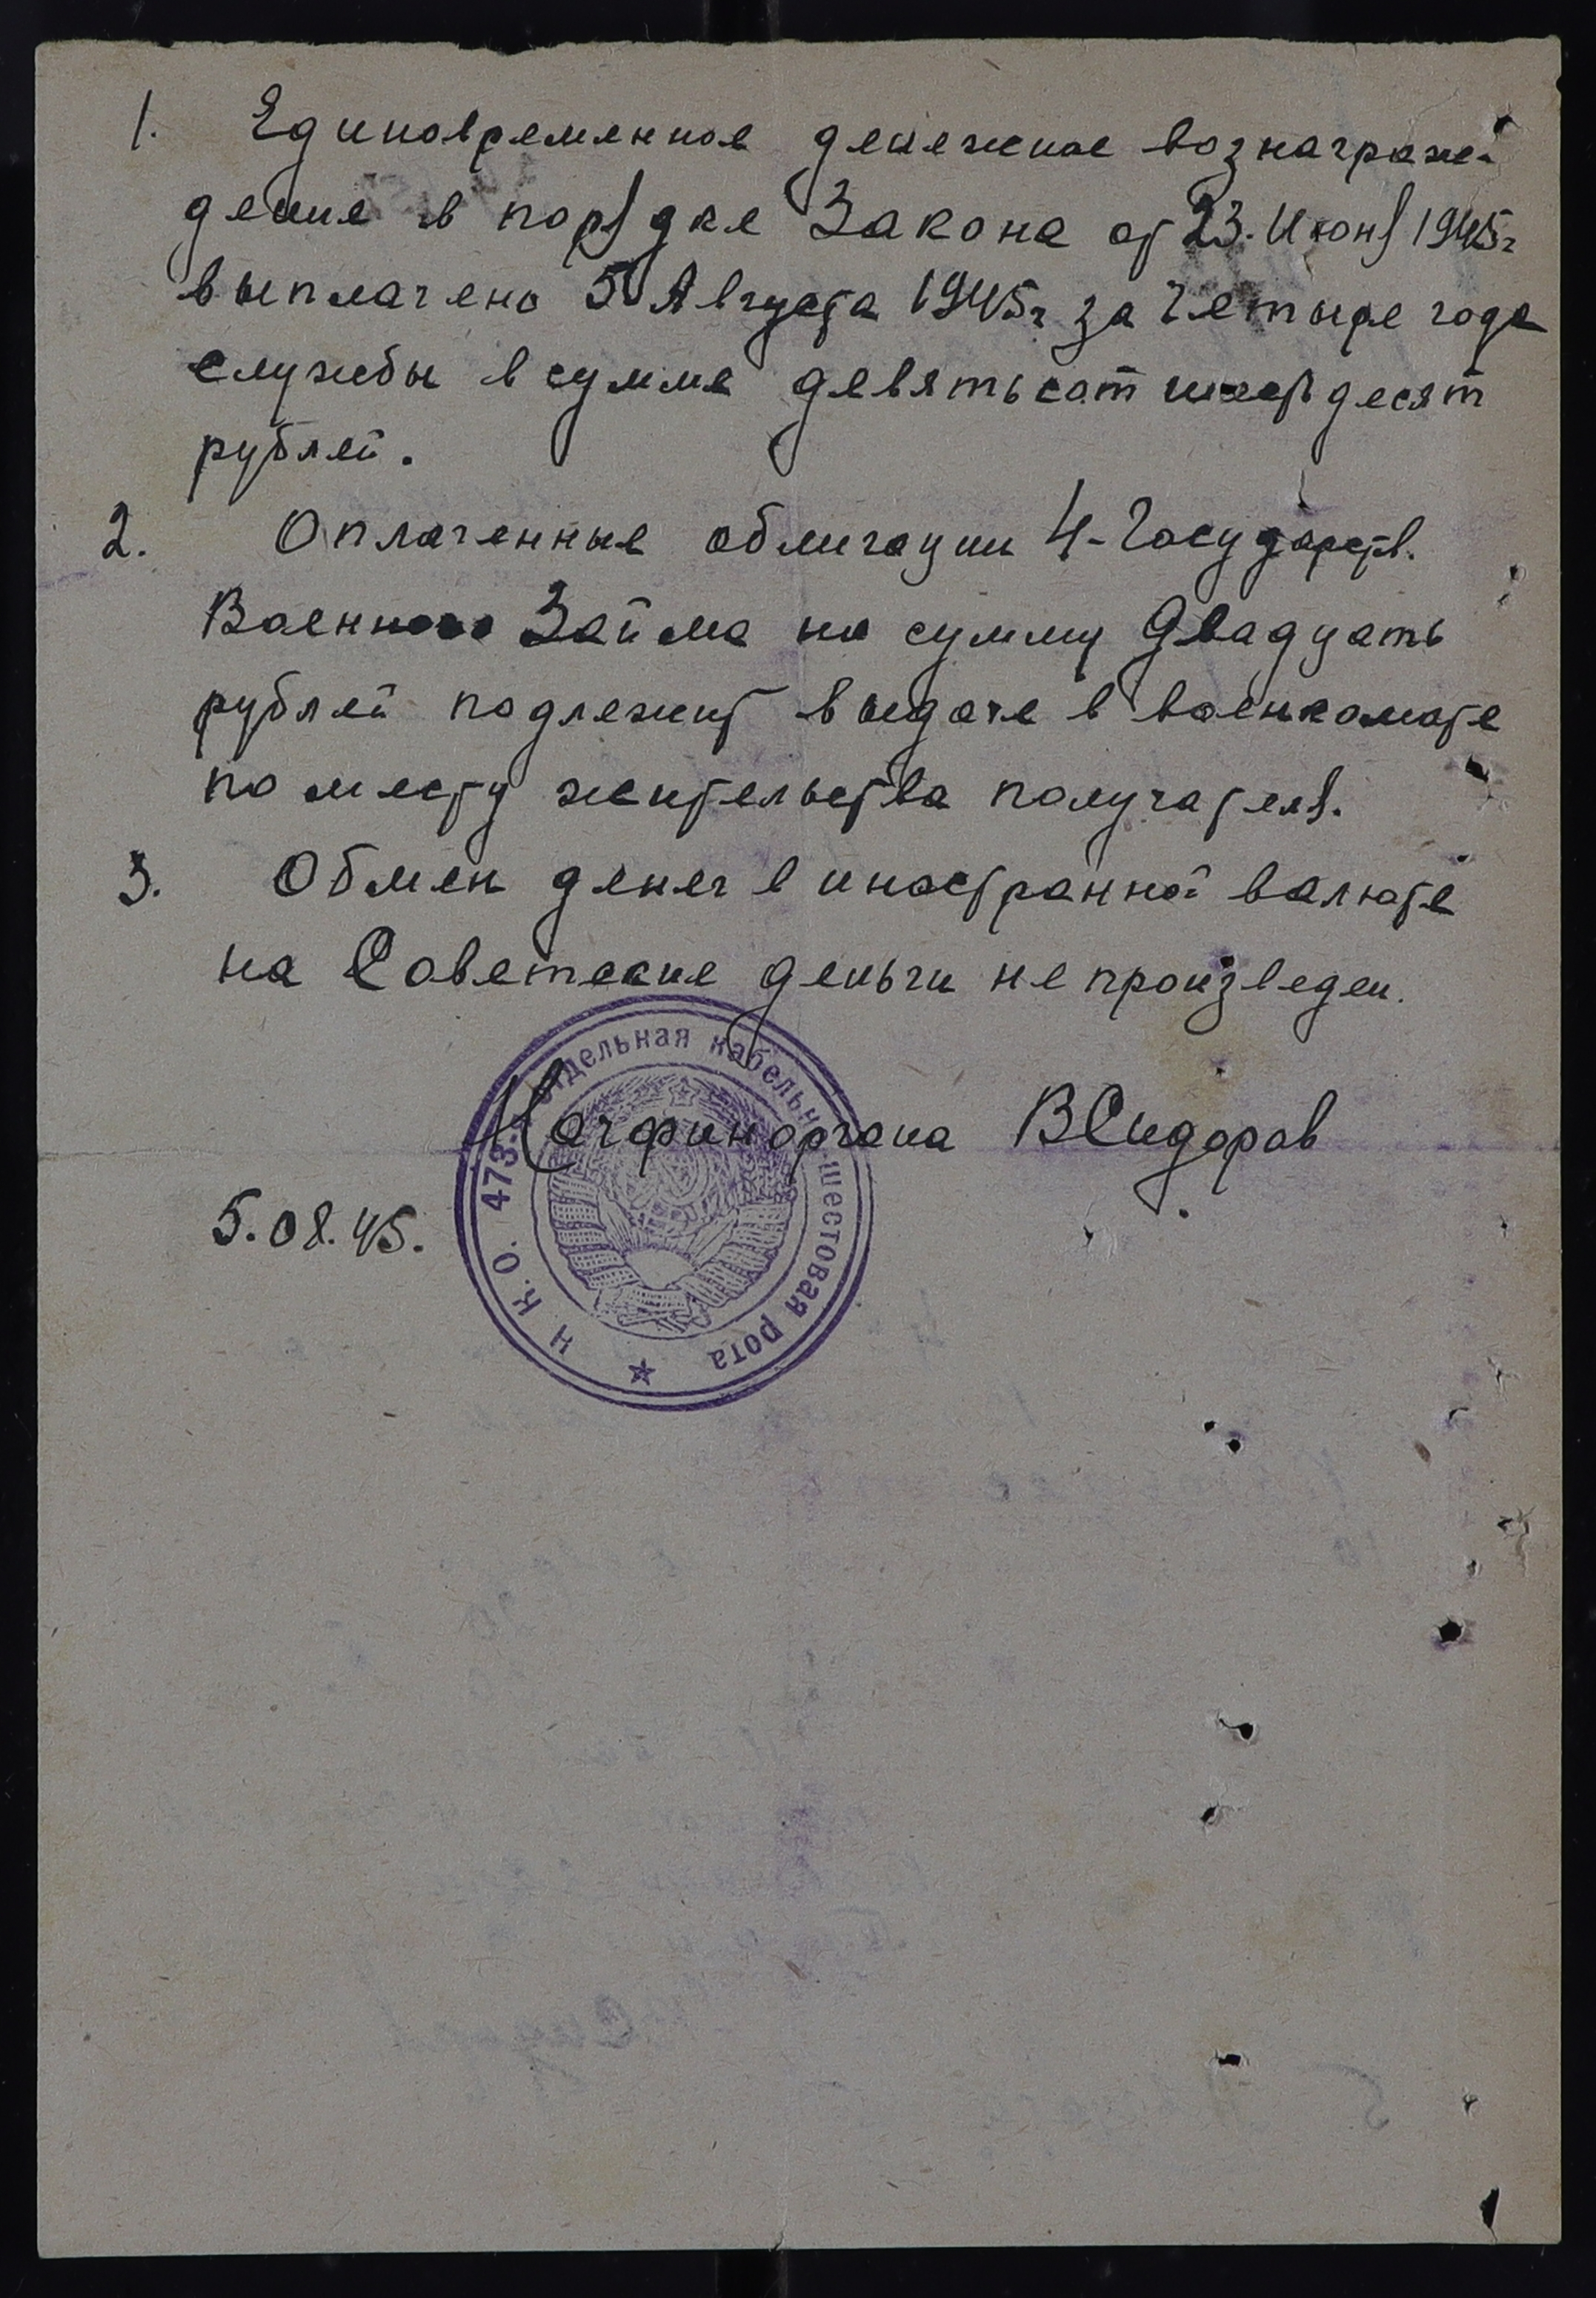 1. Единовременное денежное вознаграж-
дение в порядке Закона от 23. Июня 1945г
выплачено 5 Августа 1945г за Четыре года
службы в сумме девятьсот шестьдесят
рублей.
2. Оплаченные облигации 4-Государств.
Военного Займа на сумму Двадцать
рублей подлежит выдаче в военкомате
по месту жительства получателя.
3. Обмен денег в иностранной валюте
на Советские деньги не произведен.
Начфиноргана ВСидоров
5.08.45.
Н.К.О. 473-я отдельная кабельно-шестовая рота